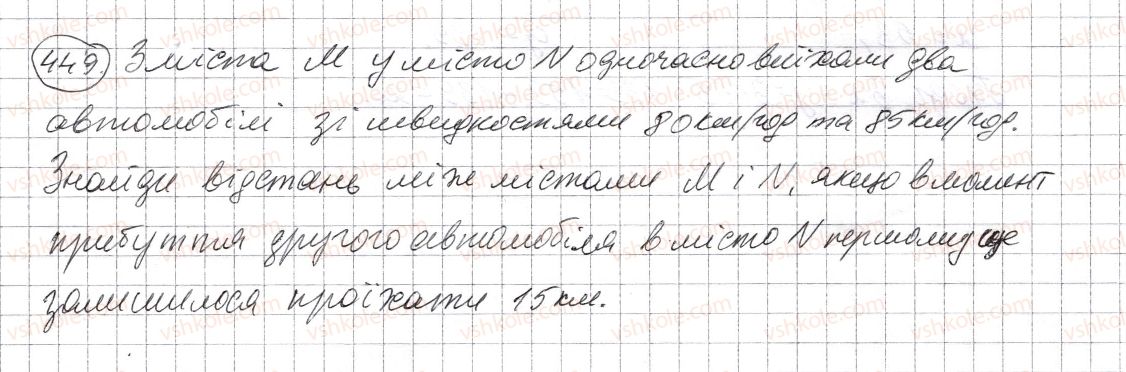 449 З міста М у місто N одночасно виїхали два
автомобілі зі швидкостями 80 км/год та 85 км/год.
Знайди відстань між містами М і N, якщо в момент
прибуття другого автомобіля в місто N першому ще
залишилося проїхати 15 км.